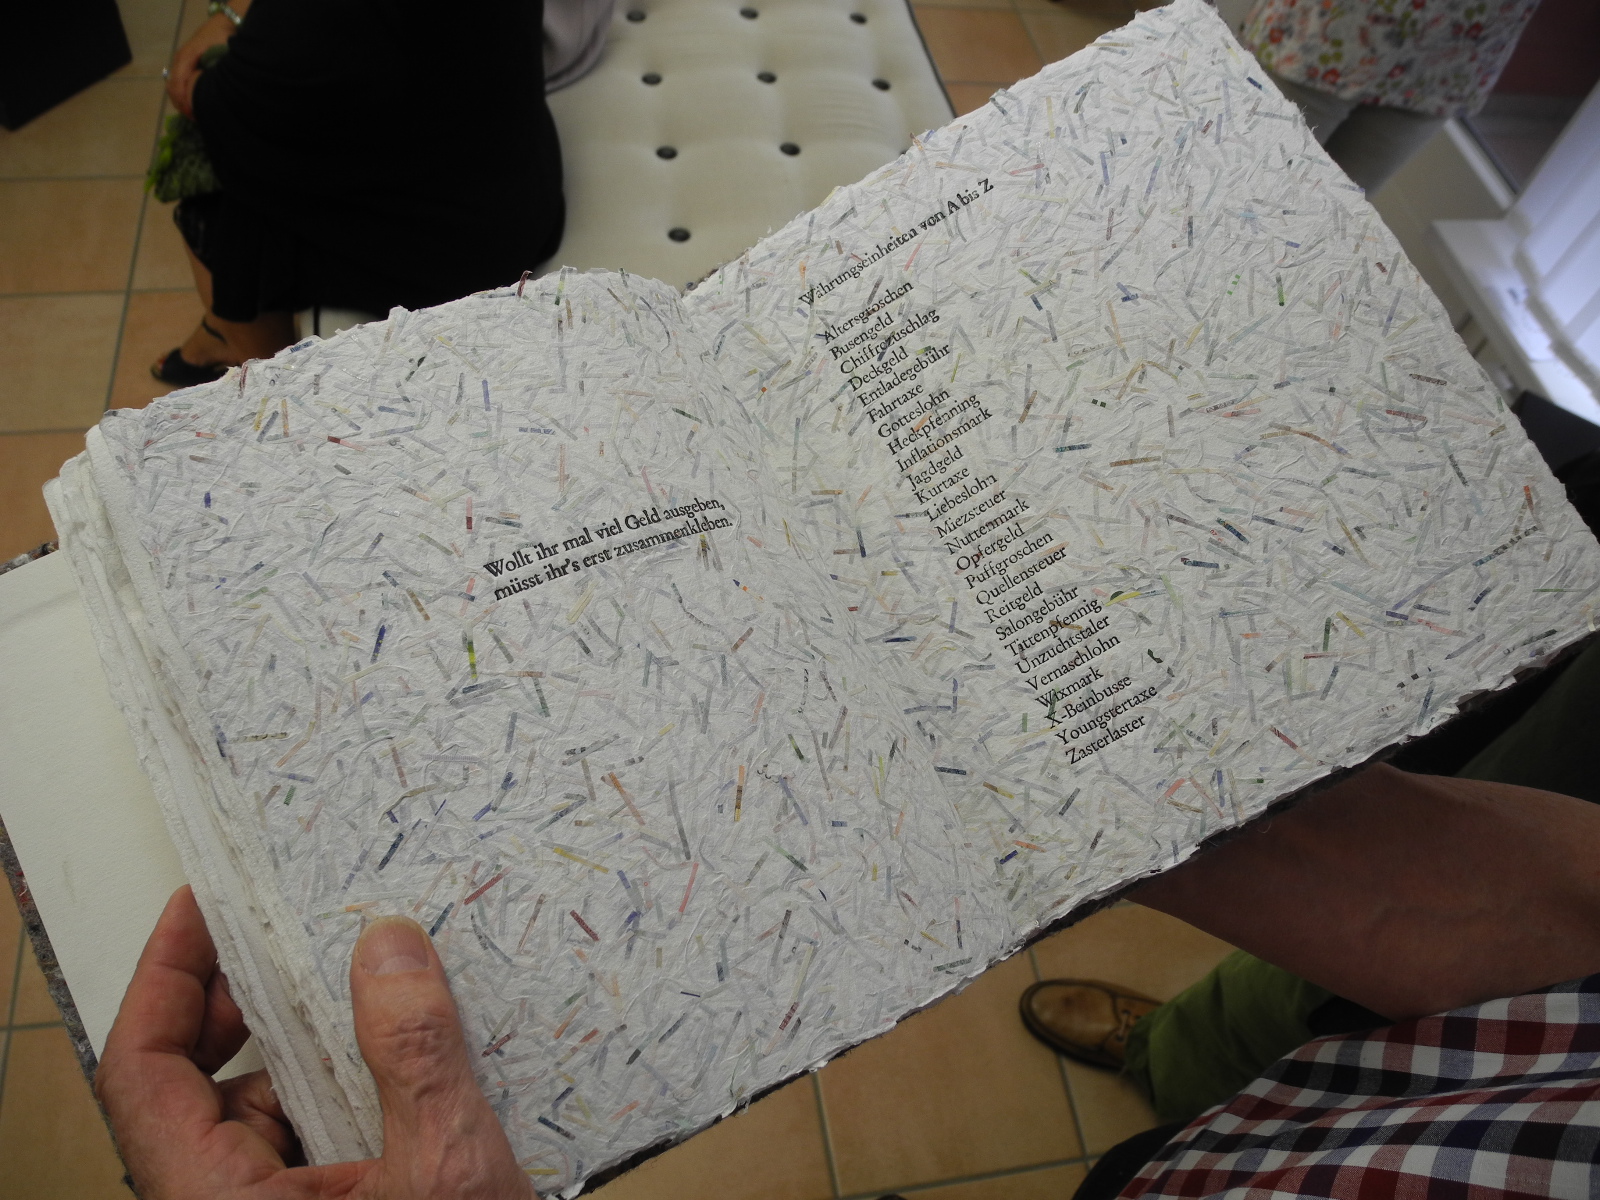 Wollt ihr mal viel Geld ausgeben,
müsst ihr's erst zusammenkleben.
Währungseinheiten von A bis Z
Altersgroschen
Busengeld
Chiffrezuschlag
Deckgeld
Entladegebühr
Fahrtaxe
Gotteslohn
Heckpfenning
Inflationsmark
Jagdgeld
Kurtaxe
Liebeslohn
Miezsteuer
Nuttenmark
Opfergeld
Puffgroschen
Quellensteuer
Reitgeld
Salongebühr
Tittenpfennig
Unzuchtstaler
Vernaschlohn
Wixmark
X-Beinbusse
Youngstertaxe
Zasterlaster